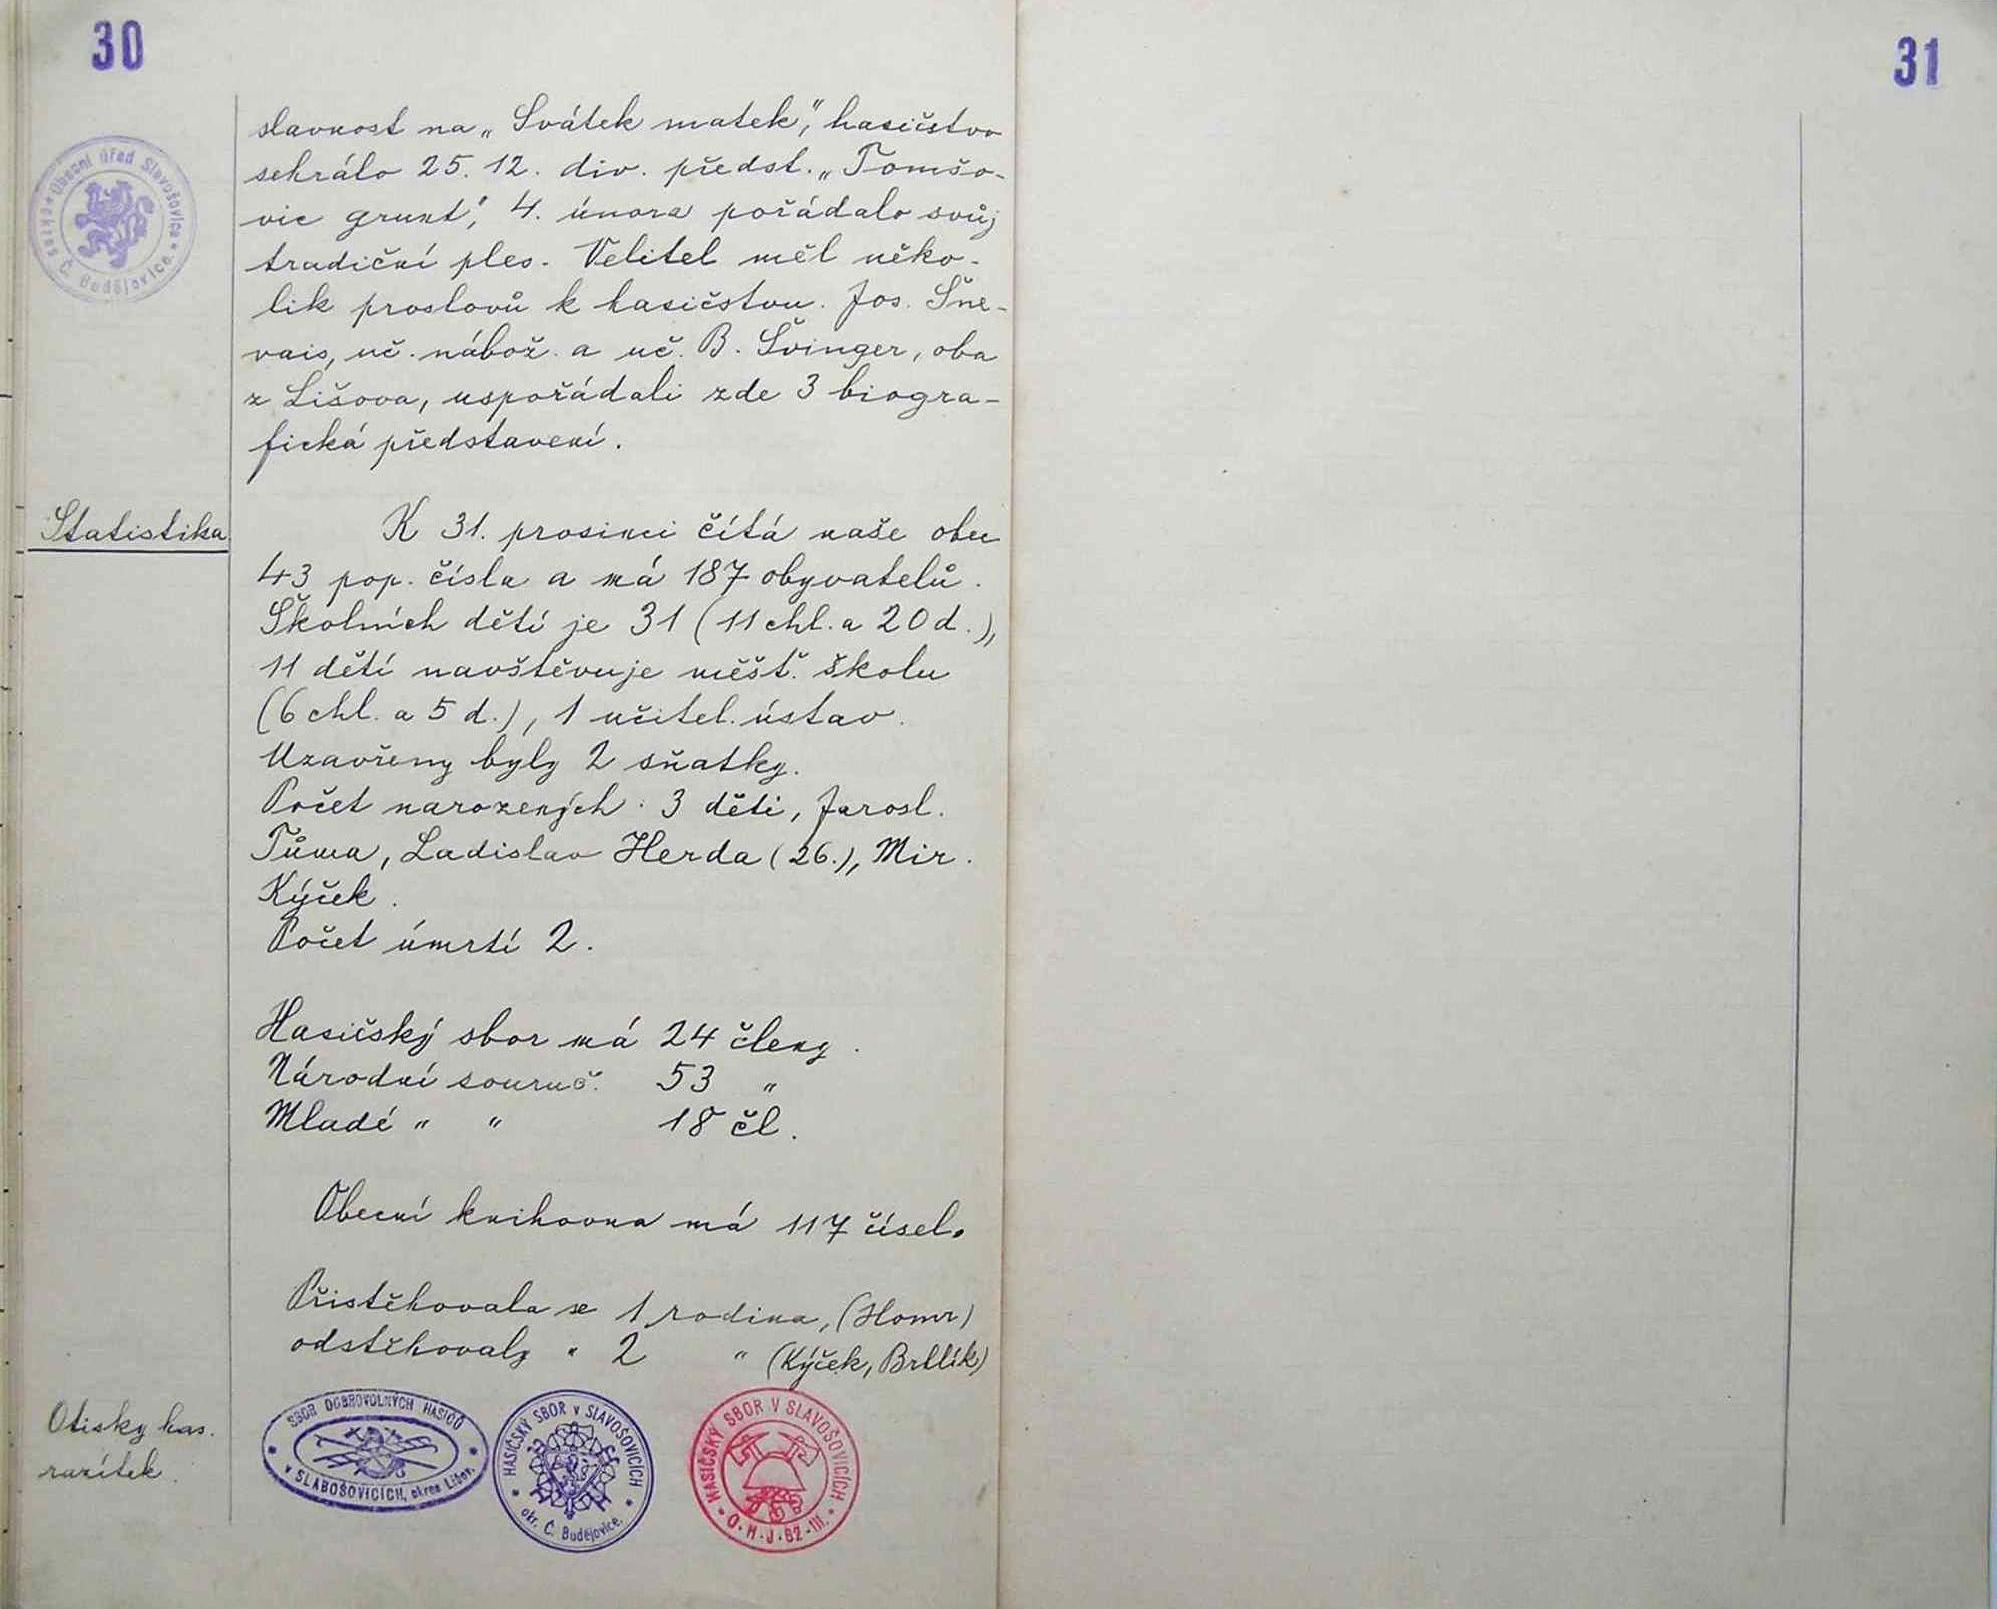 30
slavnost na „Svátek matek“, hasičstvo
sehrálo 25. 12. div. předst. „Tomšo-
vic grunt“, 4. února pořádalo svůj
tradiční ples. Velitel měl něko-
lik proslovů k hasičstvu. Jos. Šne-
vais, uč. nábož. a uč. B. Švinger, oba
z Lišova, uspořádali zde 3 biogra-
fická představení.
Obecní úřad Slavošovice
Č. Budějovice
Statistika
K 31. prosinci čítá naše obec
43 pop. čísla a má 187 obyvatelů.
Školních dětí je 31 (11 chl. a 20 d.),
11 dětí navštěvuje měšť. školu
(6 chl. a 5 d.), 1 učitel. ústav.
Uzavřeny byly 2 sňatky.
Počet narozených: 3 děti, Jarosl.
Tůma, Ladislav Herda (26.), Mir.
Kýček.
Počet úmrtí 2.
Hasičský sbor má 24 členy.
Národní souruč. 53 „
Mladé „ „ 18 čl.
Obecní knihovna má 117 čísel.
Přistěhovala se 1 rodina, (Homr)
odstěhovaly „ 2 „ (Kýček, Brtlík)
Otisky has.
razítek.
SBOR DOBROVOLNÝCH HASIČŮ
v SLABOŠOVICÍCH, okres Lišov.
HASIČSKÝ SBOR v SLAVOŠOVICÍCH
okr. Č. Budějovice.
HASIČSKÝ SBOR V SLAVOŠOVICÍCH
O.H.J.82-III.
31